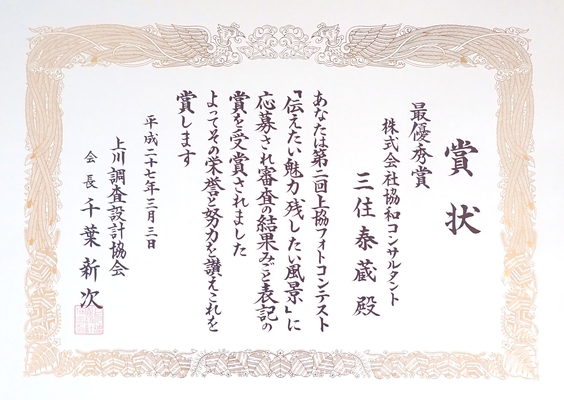 賞状
最優秀賞
株式会社協和コンサルタント
三住泰蔵殿
あなたは第二回上協フォトコンテスト
「伝えたい魅力、残したい風景」に
応募され審査の結果みごと表記の
賞を受賞されました
よってその栄誉と努力を讃えこれを
賞します
平成二十七年三月三日
上川調査設計協会
会長 千葉新次